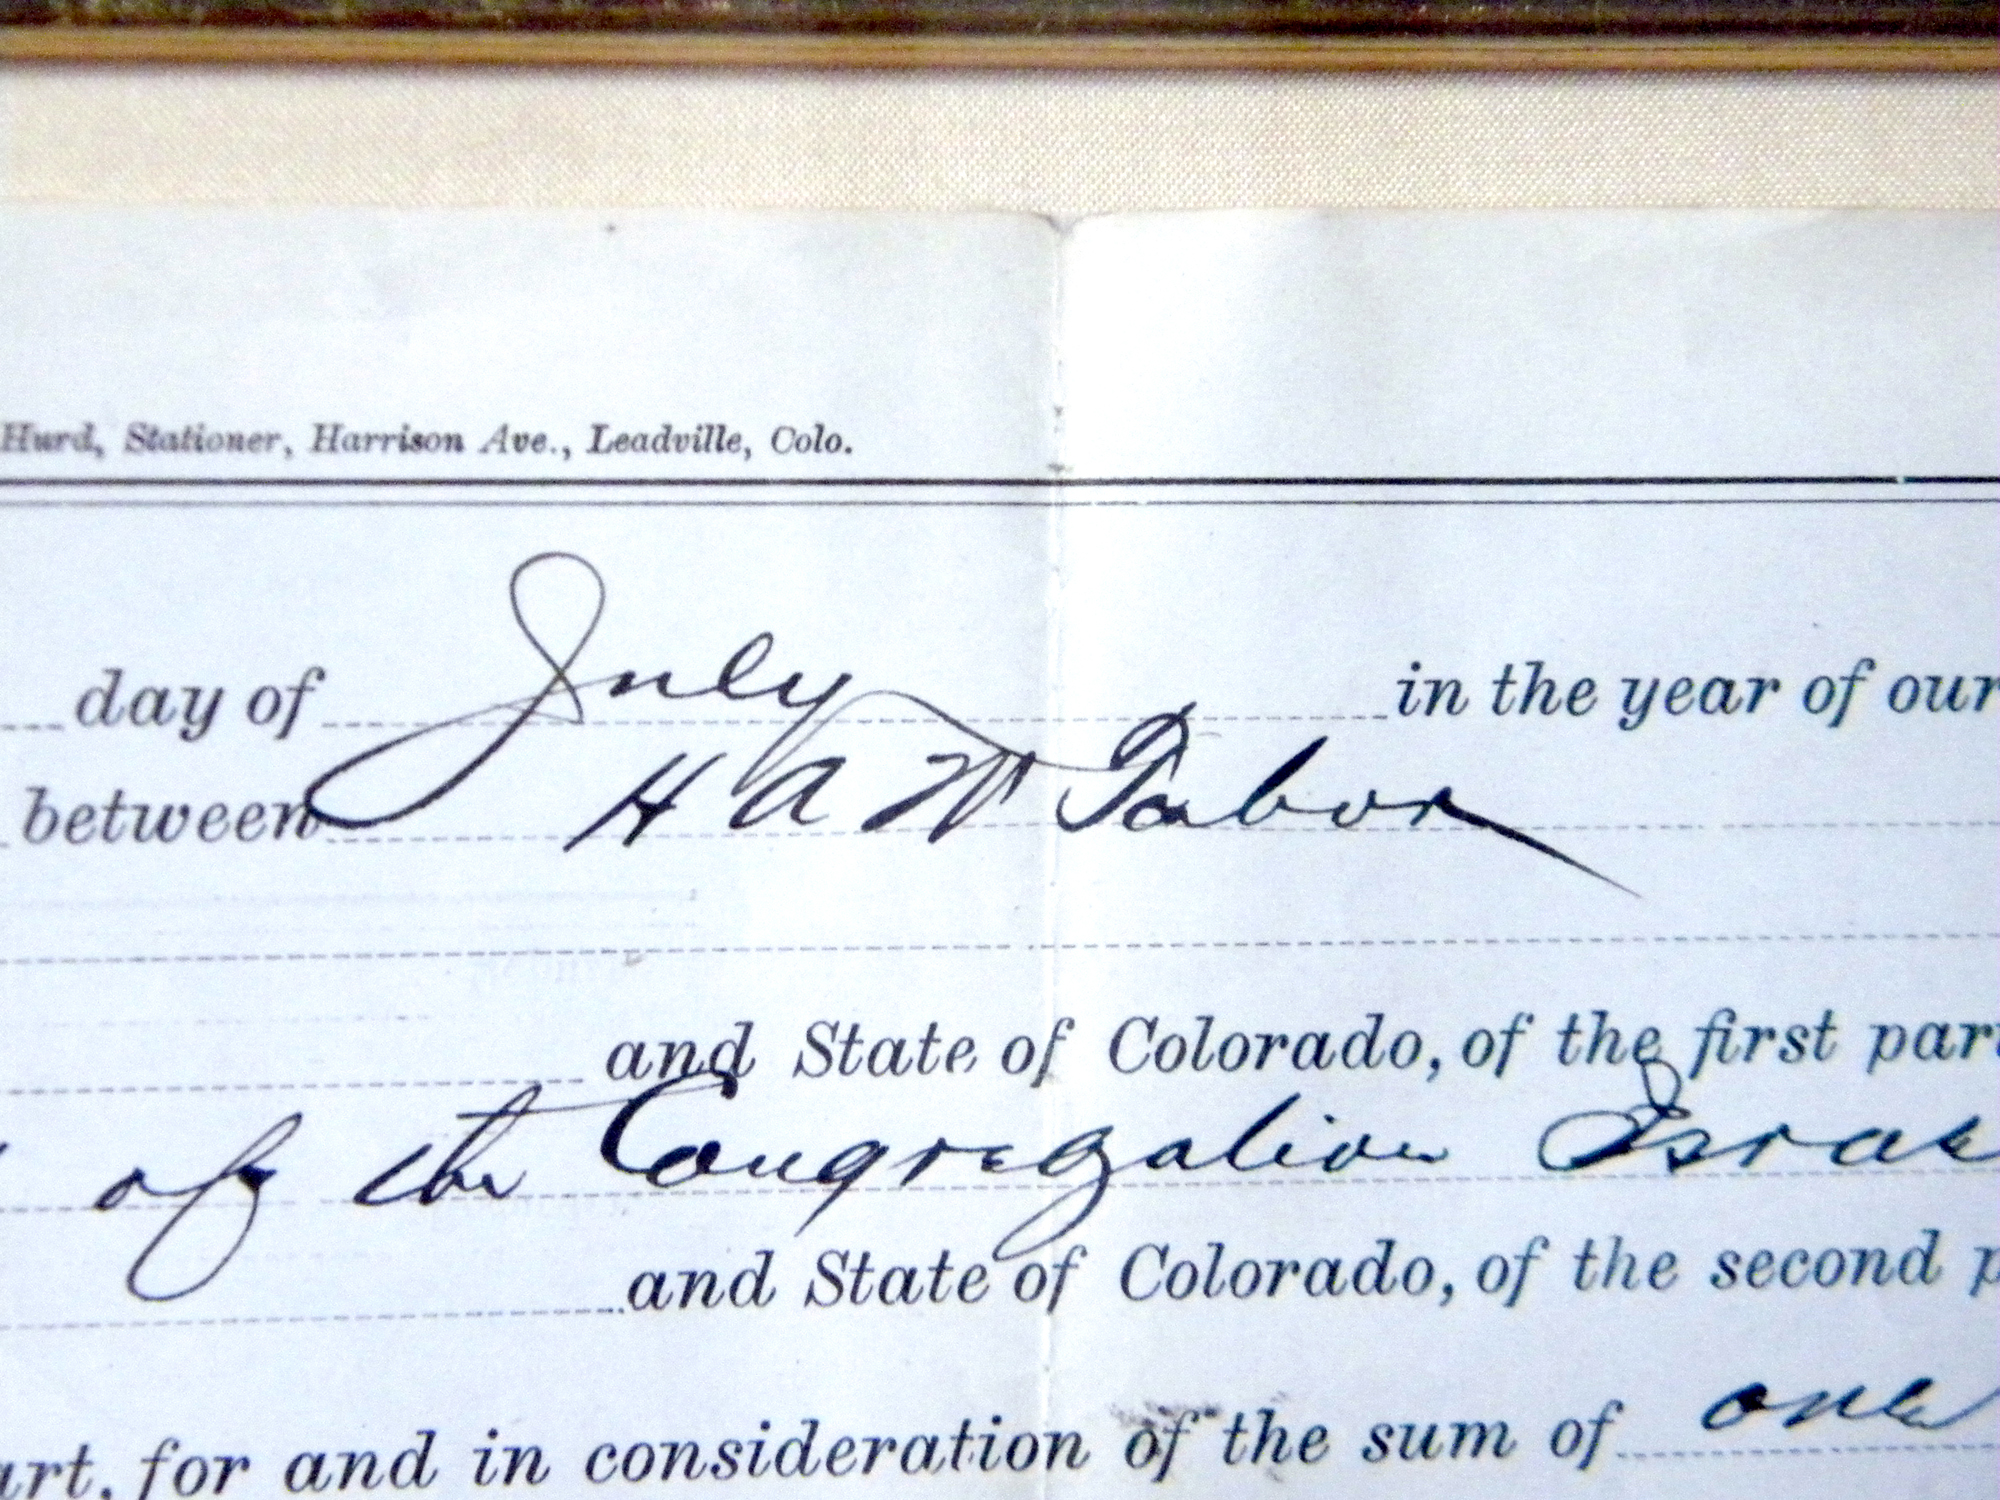 Hurd, Stationer, Harrison Ave., Leadville, Colo.
day of July in the year of our
between H A W Tabor
and State of Colorado, of the first part
of the Congregation Israel
and State of Colorado, of the second p
art, for and in consideration of the sum of one